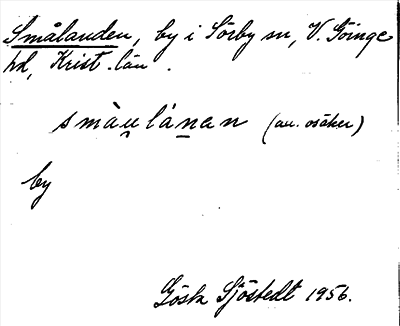 Smålanden, by i Sörby sn, V. Göinge
hd, Krist. län.
smàu̯lánan (au. osäker)
by
Gösta Sjöstedt 1956.